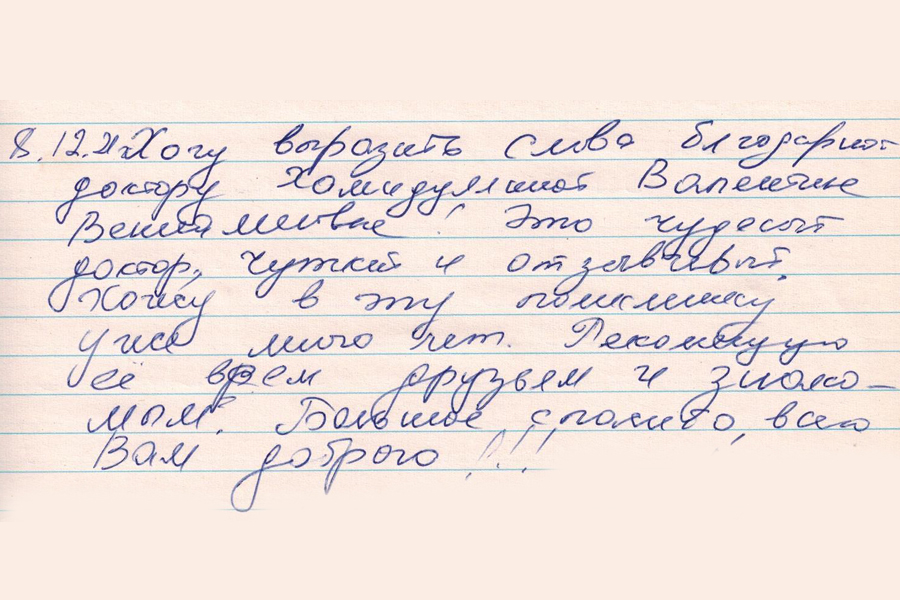 8.12.21 Хочу выразить слова блгодарност
доктору Хамидуллиной Валентине
Вениаминовне! Это чудесный
доктор, чуткий и отзывчивый.
Хожу в эту поликлинику
уже много лет. Рекомендую
её всем друзьям и знако-
мым. Большое спасибо, всего
Вам доброго!!!